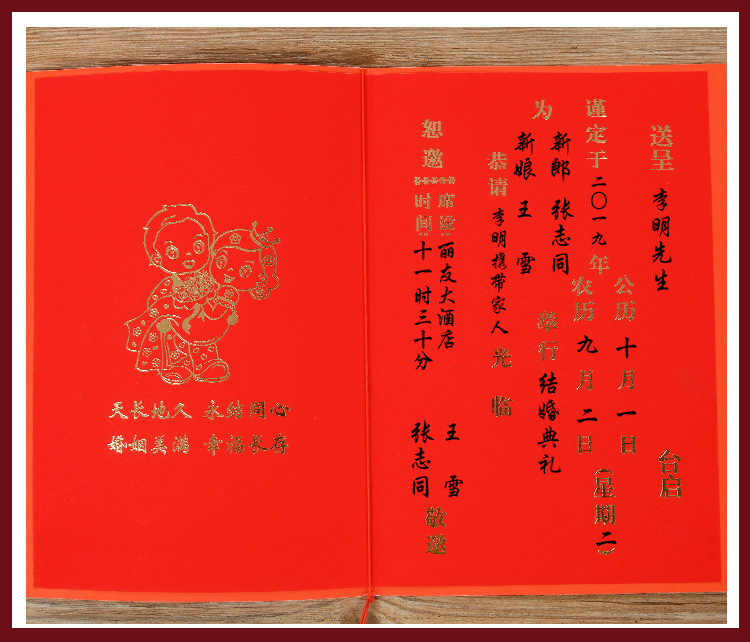 送呈 李明先生 台启
谨定于 二〇一九 年
公历 十月一日
农历 九月二日
(星期二)
为
新郎 张志同
新娘 王雪
举行 结婚典礼
恭请 李明携带家人 光临
恕邀
席设:丽友大酒店
时间:十一时三十分
王雪
张志同
敬邀
天长地久 永结同心
婚姻美满 幸福长存